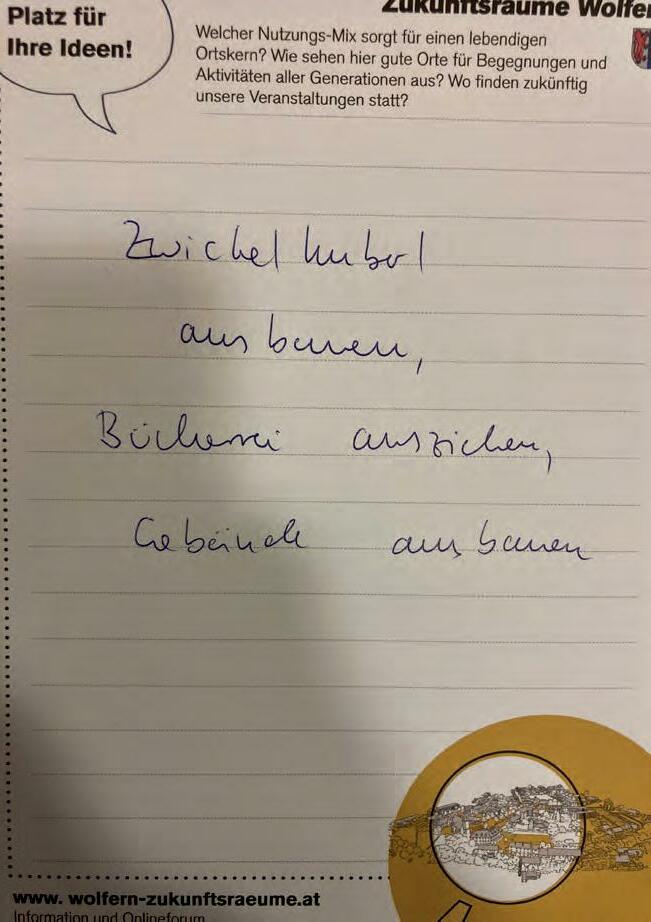 Platz für
Ihre Ideen!
Zukunftsräume Wolfer
Welcher Nutzungs-Mix sorgt für einen lebendigen
Ortskern? Wie sehen hier gute Orte für Begegnungen und
Aktivitäten aller Generationen aus? Wo finden zukünftig
unsere Veranstaltungen statt?
Zwickelhuberl
ausbauen,
Bücherei ausziehen,
Gebäude ausbauen
www. wolfern-zukunftsraeume.at
Information und Onlineforum